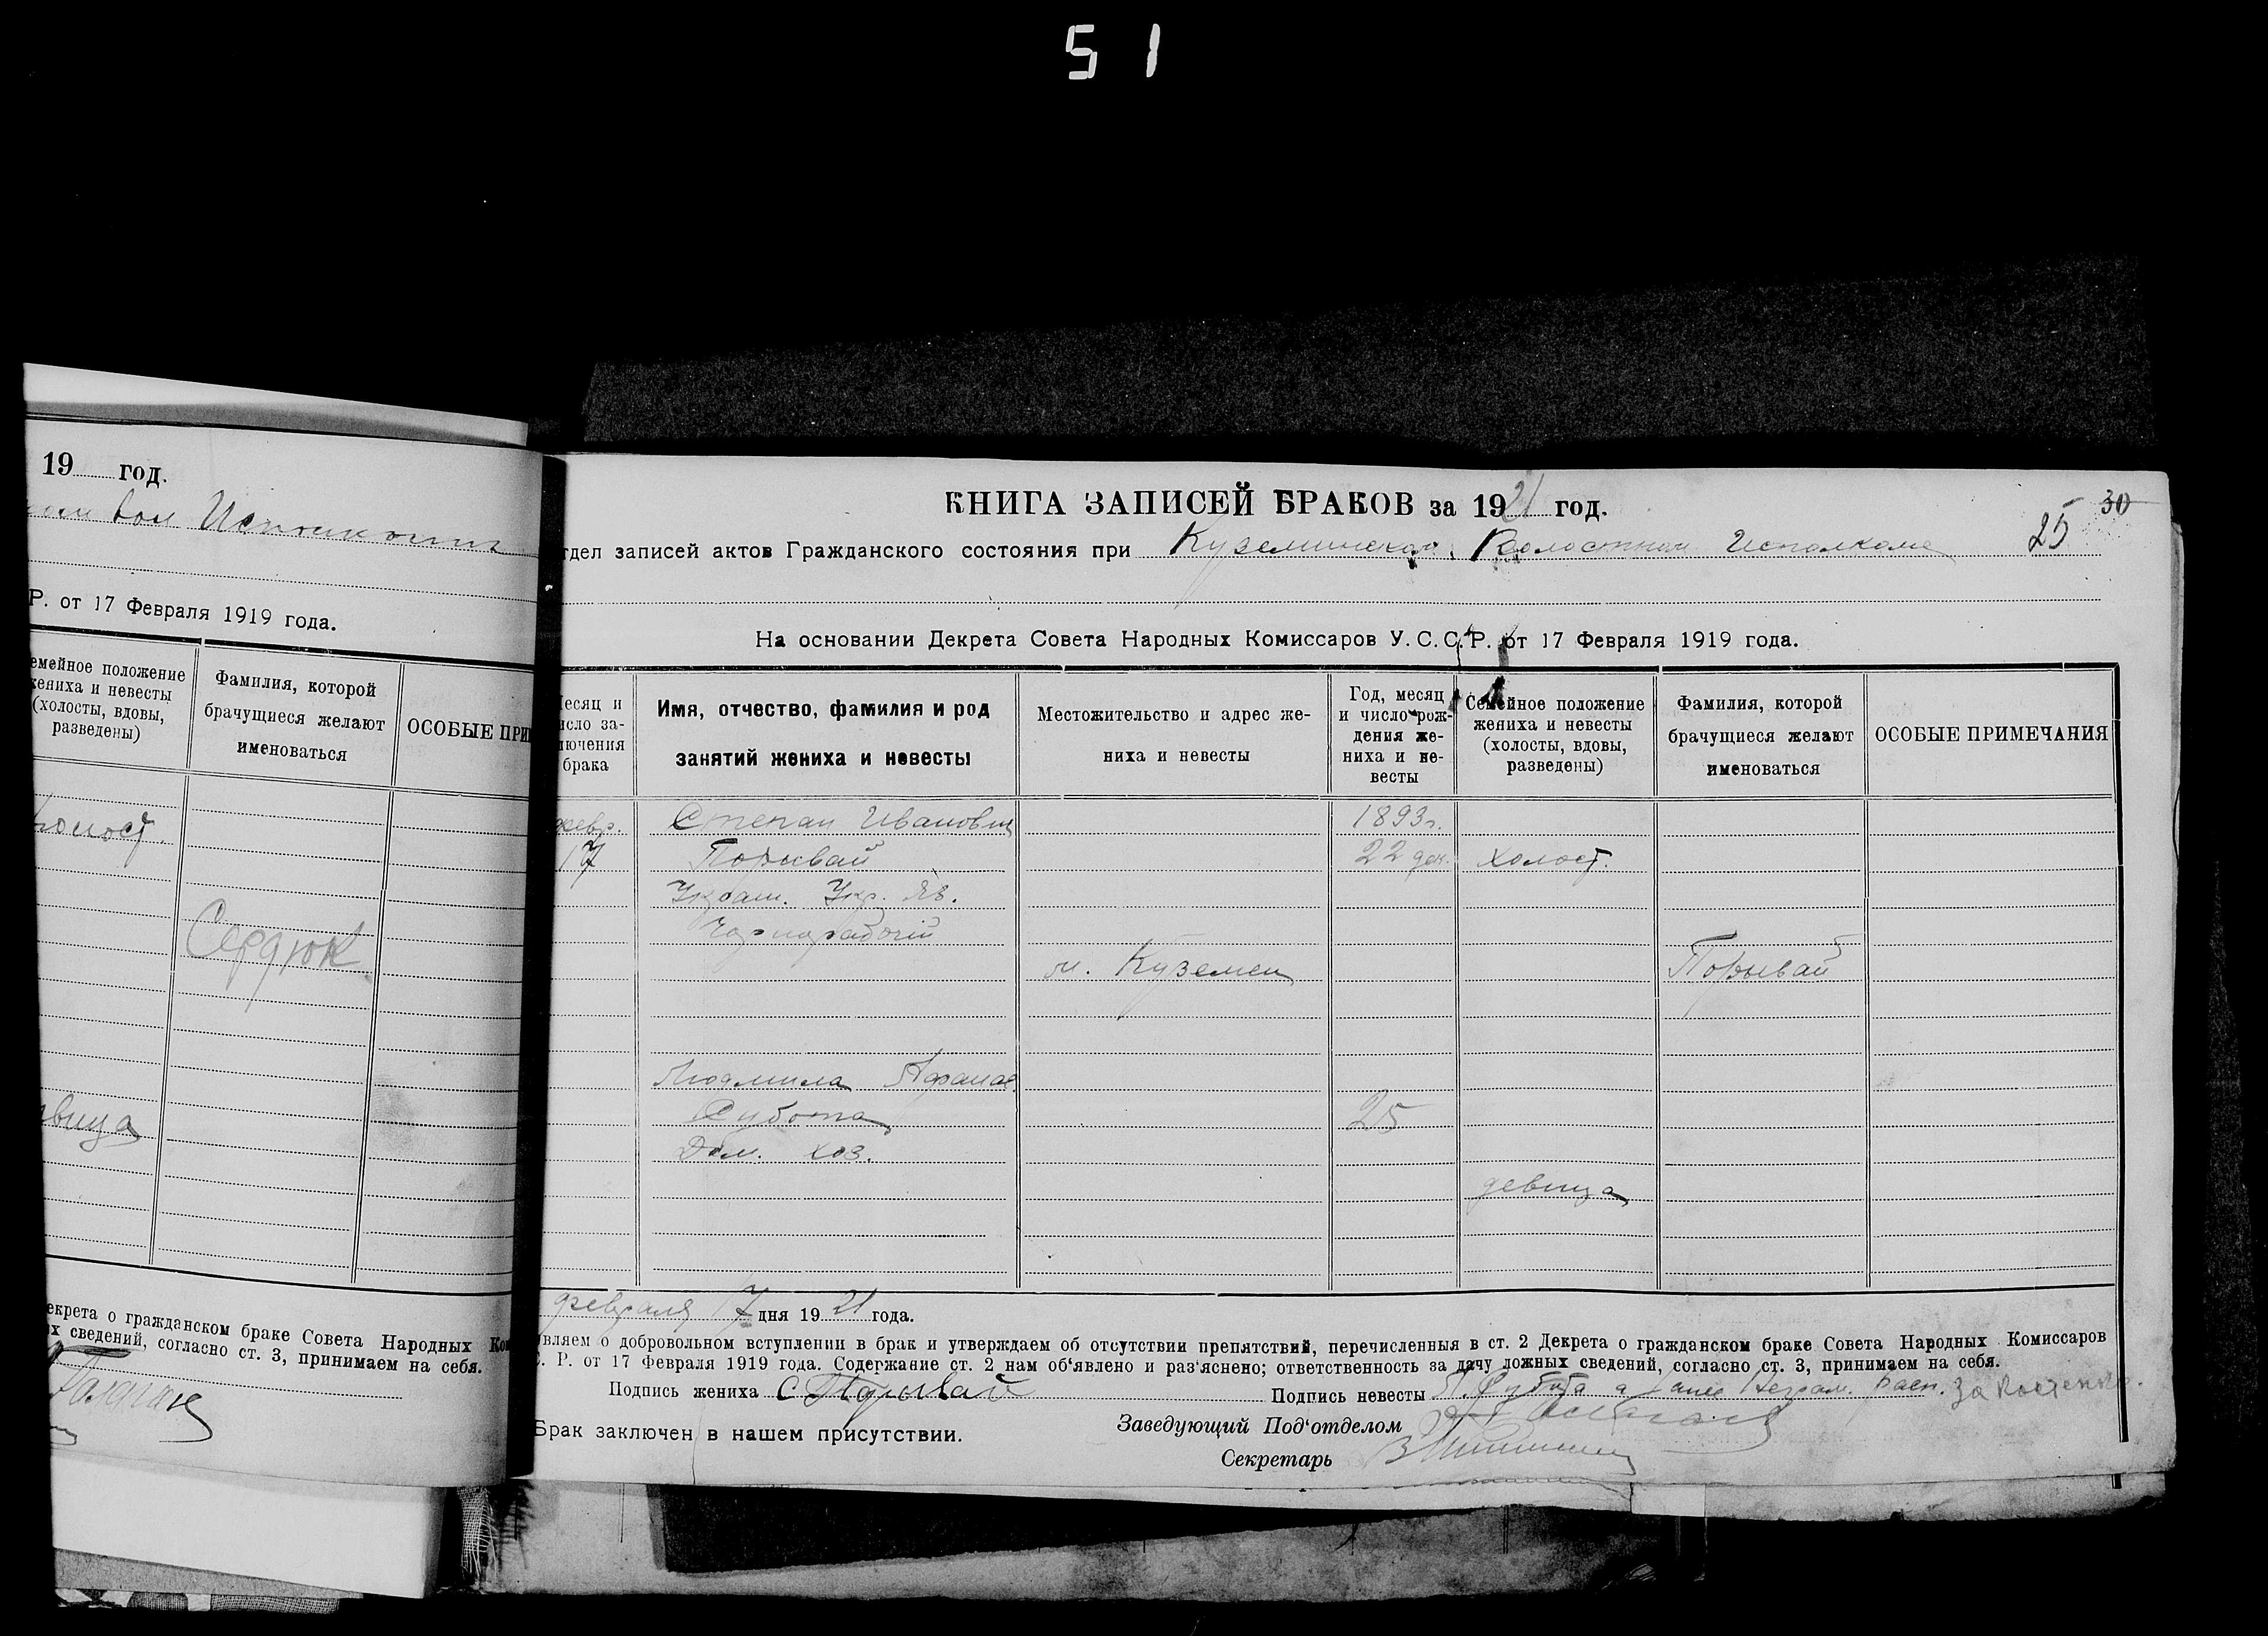 51
19 год.
Р. от 17 Февраля 1919 года.
емейное положение
жениха и невесты
(холосты, вдовы,
разведены)
Фамилия, которой
брачущиеся желают
именоваться
ОСОБЫЕ ПРИ
холост.
Сердюк
вица
екрета о гражданском браке Совета Народных Ко
х сведений, согласно ст. 3, принимаем на себя.
КНИГА ЗАПИСЕЙ БРАКОВ за 1921 год.
30
25
тдел записей актов Гражданского состояния при Куземинском Волостном Исполкоме
На основании Декрета Совета Народных Комиссаров У.С.С.Р. от 17 Февраля 1919 года.
есяц и
исло за-
лючения
брака
Имя, отчество, фамилия и род
занятий жениха и невесты
Местожительство и адрес же-
ниха и невесты
Год, месяц
и число рож-
дения же-
ниха и не-
весты
Семейное положение
жениха и невесты
(холосты, вдовы,
разведены)
Фамилия, которой
брачущиеся желают
именоваться
ОСОБЫЕ ПРИМЕЧАНИЯ
февр. Степан Иванович 1893г.
17 Порывай 22 дек. холост.
Украин. Укр. яз.
Чернорабочий
м. Куземен Порывай
Людмила Афанас.
Субота 25
Дом. хоз.
девица
февраля 17 дня 1921 года.
вляем о добровольном вступлении в брак и утверждаем об отсутствии препятствий, перечисленныя в ст. 2 Декрета о гражданском браке Совета Народных Комиссаров
С. Р. от 17 Февраля 1919 года. Содержание ст. 2 нам об‘явлено и раз‘яснено; ответственность за дачу ложных сведений, согласно ст. 3, принимаем на себя.
Подпись жениха С Порывай Подпись невесты Л. Субота а за нее Неграм. расп.
Заведующий Под‘отделом
Брак заключен в нашем присутствии.
Секретарь